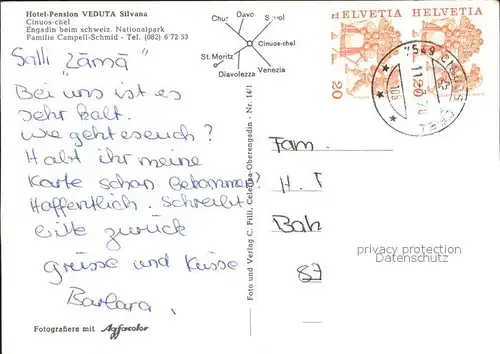 Hotel-Pension VEDUTA Silvana
Cinuos-chel
Engadin beim schweiz. Nationalpark
Familie Campell-Schmid - Tel. (082) 6 72 53
Chur Davo Scuol
Cinuos-chel
St. Moritz
Diavolezza Venezia
HELVETIA HELVETIA
20 20
7549 CINUOS-CHEL
Salli "Zämä"
Bei uns ist es
sehr kalt.
Wie geht es euch?
Habt ihr meine
Karte schon bekommen?
Hoffentlich. Schreibt
bitte zurück
grüsse und Küsse
Barbara.
Fam.
H. T
Bah
Foto und Verlag C. Filli, Celerina-Oberengadin - Nr. 14/1
privacy protection
Datenschutz
Fotografiere mit Agfacolor